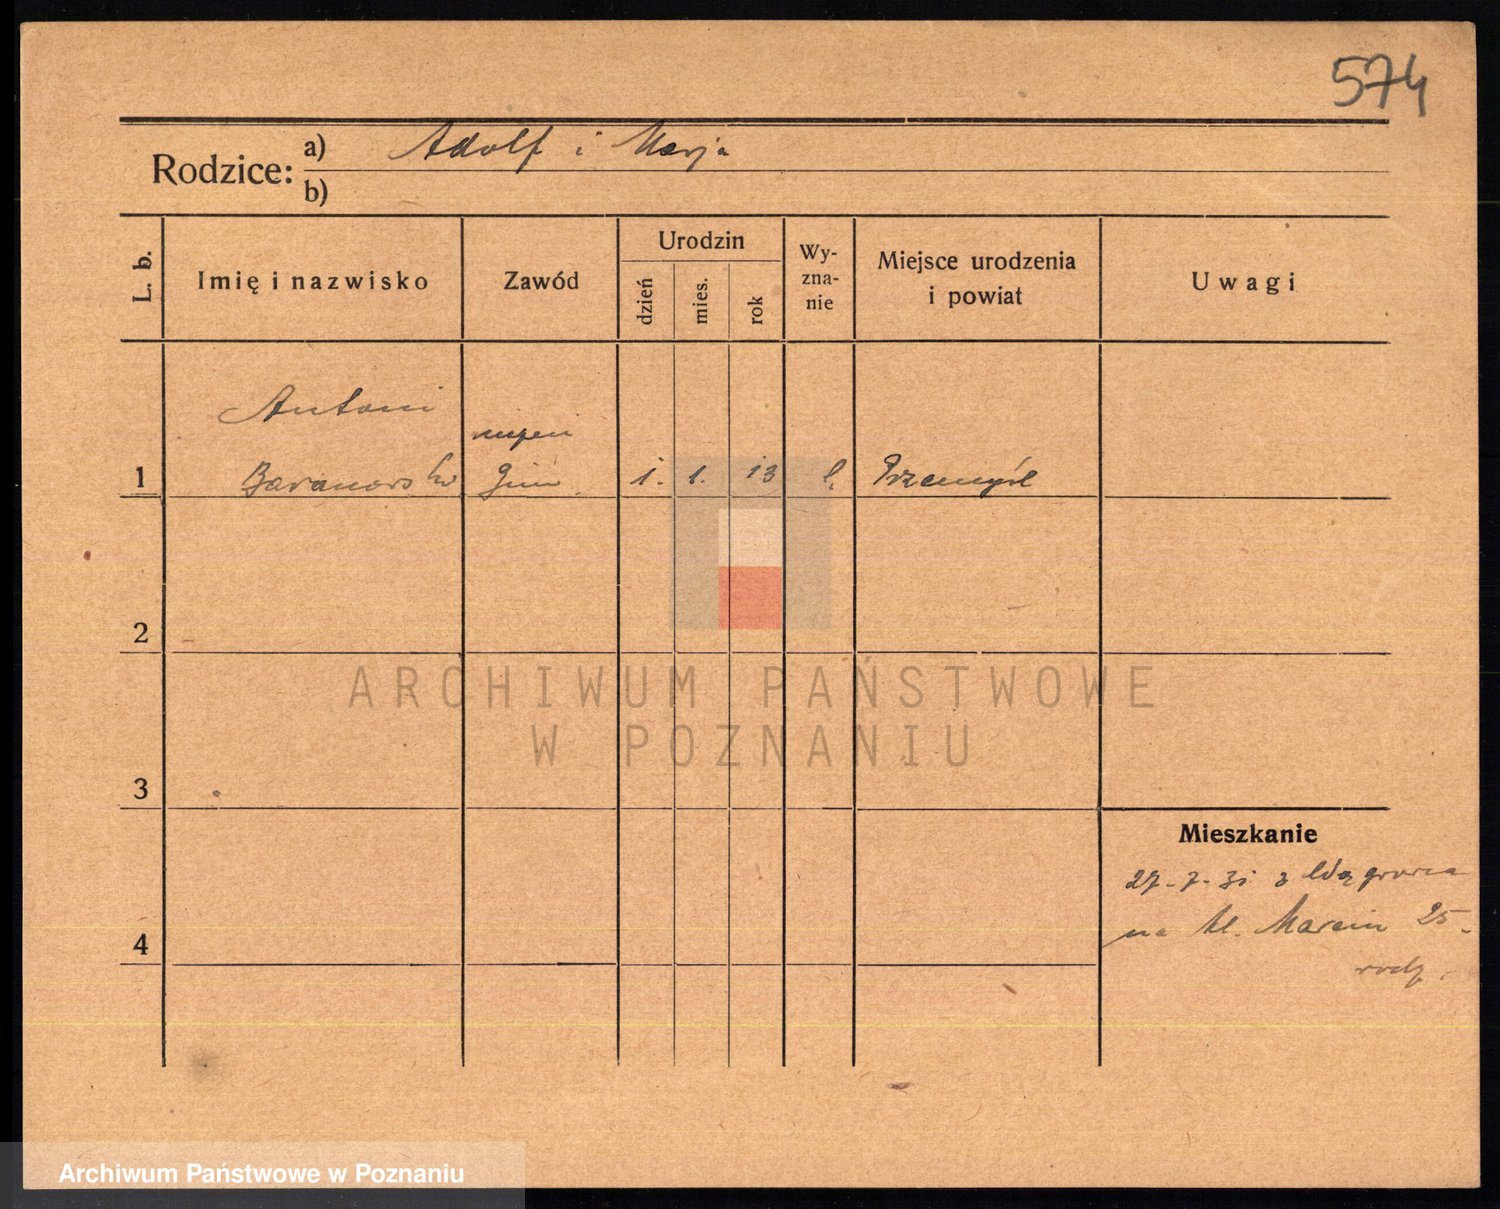 574
Rodzice: a) Adolf i Marja
b)
L. b.
Imię i nazwisko
Zawód
Urodzin
dzień
mies.
rok
Wy-
zna-
nie
Miejsce urodzenia
i powiat
Uwagi
Antoni
1 Baranowski Gim. 1. 1. 13 Przemyśl
2
3
4
Mieszkanie
27-7-31 z
na Marcin 25
rodz.
ARCHIWUM PAŃSTWOWE
W POZNANIU
Archiwum Państwowe w Poznaniu